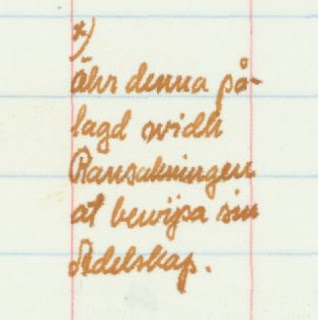 *)
Ähr denna på-
lagd widh
Ransakningen
at bewijsa sin
Adelskap.